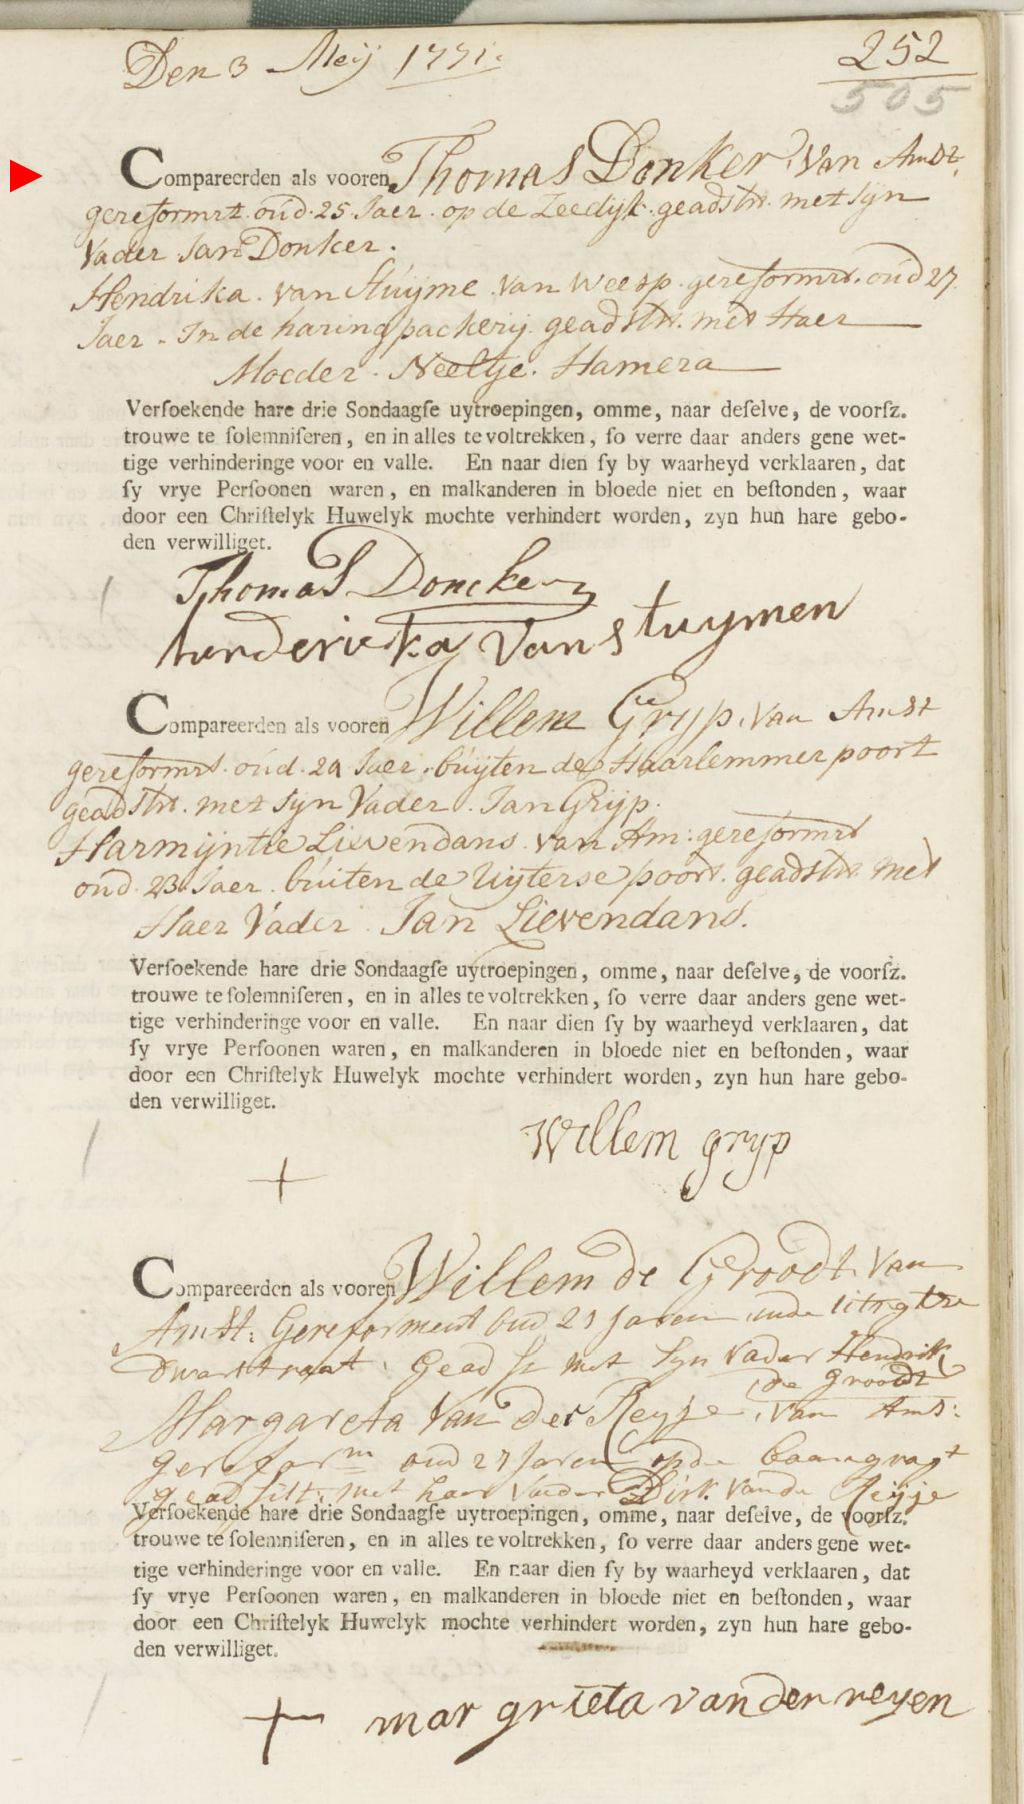 Den 3 Meij 1771.
252
505
Compareerden als vooren Thomas Donker, van Amst,
gereformrt. oud. 25 Jaer. op de Zeedijk. geadstr. met syn
Vader Jan Donker.
Hendrika. van Stuyme. van Weesp. gereformrt. oud 27.
Jaer. In de haring packerij. geadstr. met Haer
Moeder. Neeltje. Hamera
Verſoekende hare drie Sondaagſe uytroepingen, omme, naar deſelve, de voorſz.
trouwe te ſolemniſeren, en in alles te voltrekken, ſo verre daar anders gene wet-
tige verhinderinge voor en valle. En naar dien ſy by waarheyd verklaaren, dat
ſy vrye Perſoonen waren, en malkanderen in bloede niet en beſtonden, waar
door een Chriſtelyk Huwelyk mochte verhindert worden, zyn hun hare gebo-
den verwilliget.
Thomas Doncker
henderieka van stuymen
Compareerden als vooren Willem Gryp, van Amst
gereformrt. oud. 2a Jaer. buyten de Haarlemmer poort
geadstr. met syn Vader. Jan Gryp.
Harmijntie Lievendans. van Am: gereformrt
oud. 23. Jaer. buiten de Uyterse poort. geadstr. met
Haer Vader. Jan Lievendans.
Verſoekende hare drie Sondaagſe uytroepingen, omme, naar deſelve, de voorſz.
trouwe te ſolemniſeren, en in alles te voltrekken, ſo verre daar anders gene wet-
tige verhinderinge voor en valle. En naar dien ſy by waarheyd verklaaren, dat
ſy vrye Perſoonen waren, en malkanderen in bloede niet en beſtonden, waar
door een Chriſtelyk Huwelyk mochte verhindert worden, zyn hun hare gebo-
den verwilliget.
Willem gryp
Compareerden als vooren Willem de Groodt, van
Amst: Gereformeert oud 21 Jaren, inde
Dwarstraat, Gead st met Syn Vader Hendrik
de Groodt
Margareta van der Reyje, van Ams:
gereformn oud 27 Jaren op de baangragt
gead sist, met haar Vader Dirk vande Reyje
Verſoekende hare drie Sondaagſe uytroepingen, omme, naar deſelve, de voorſz.
trouwe te ſolemniſeren, en in alles te voltrekken, ſo verre daar anders gene wet-
tige verhinderinge voor en valle. En naar dien ſy by waarheyd verklaaren, dat
ſy vrye Perſoonen waren, en malkanderen in bloede niet en beſtonden, waar
door een Chriſtelyk Huwelyk mochte verhindert worden, zyn hun hare gebo-
den verwilliget.
mar grieta van der reyen